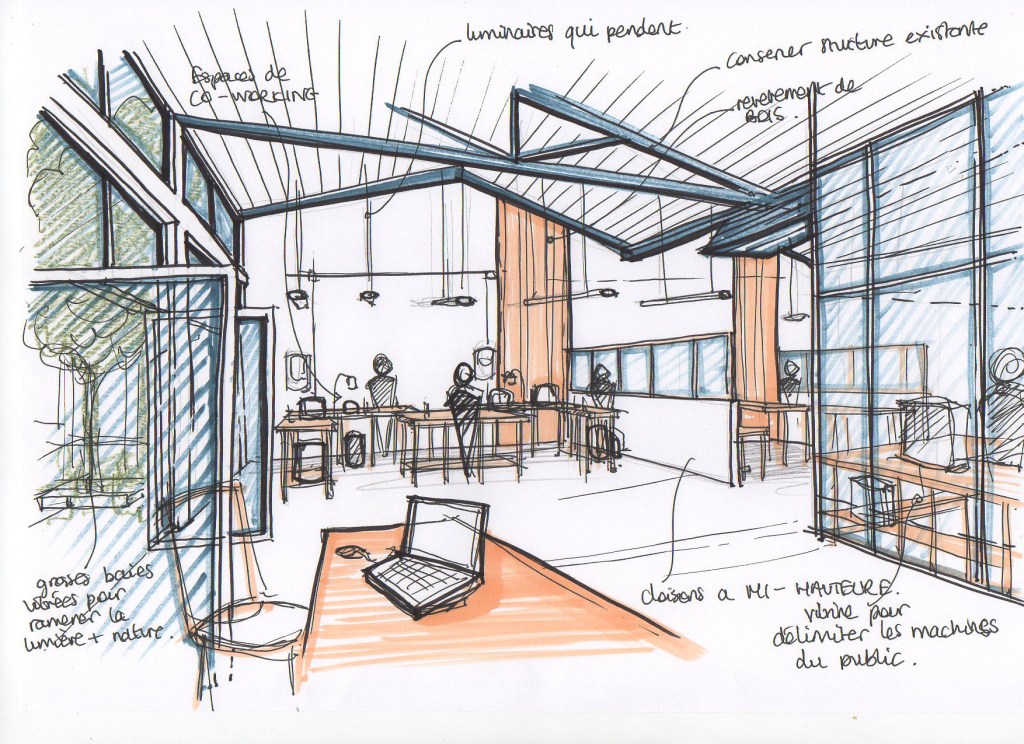 luminaires qui pendent.
Espaces de
CO-WORKING
conserver structure existante
revetement de
BOIS.
grosses baies
vitrées pour
ramener la
lumière + nature.
cloisons a MI-HAUTEURE.
vitrine pour
délimiter les machines
du public.